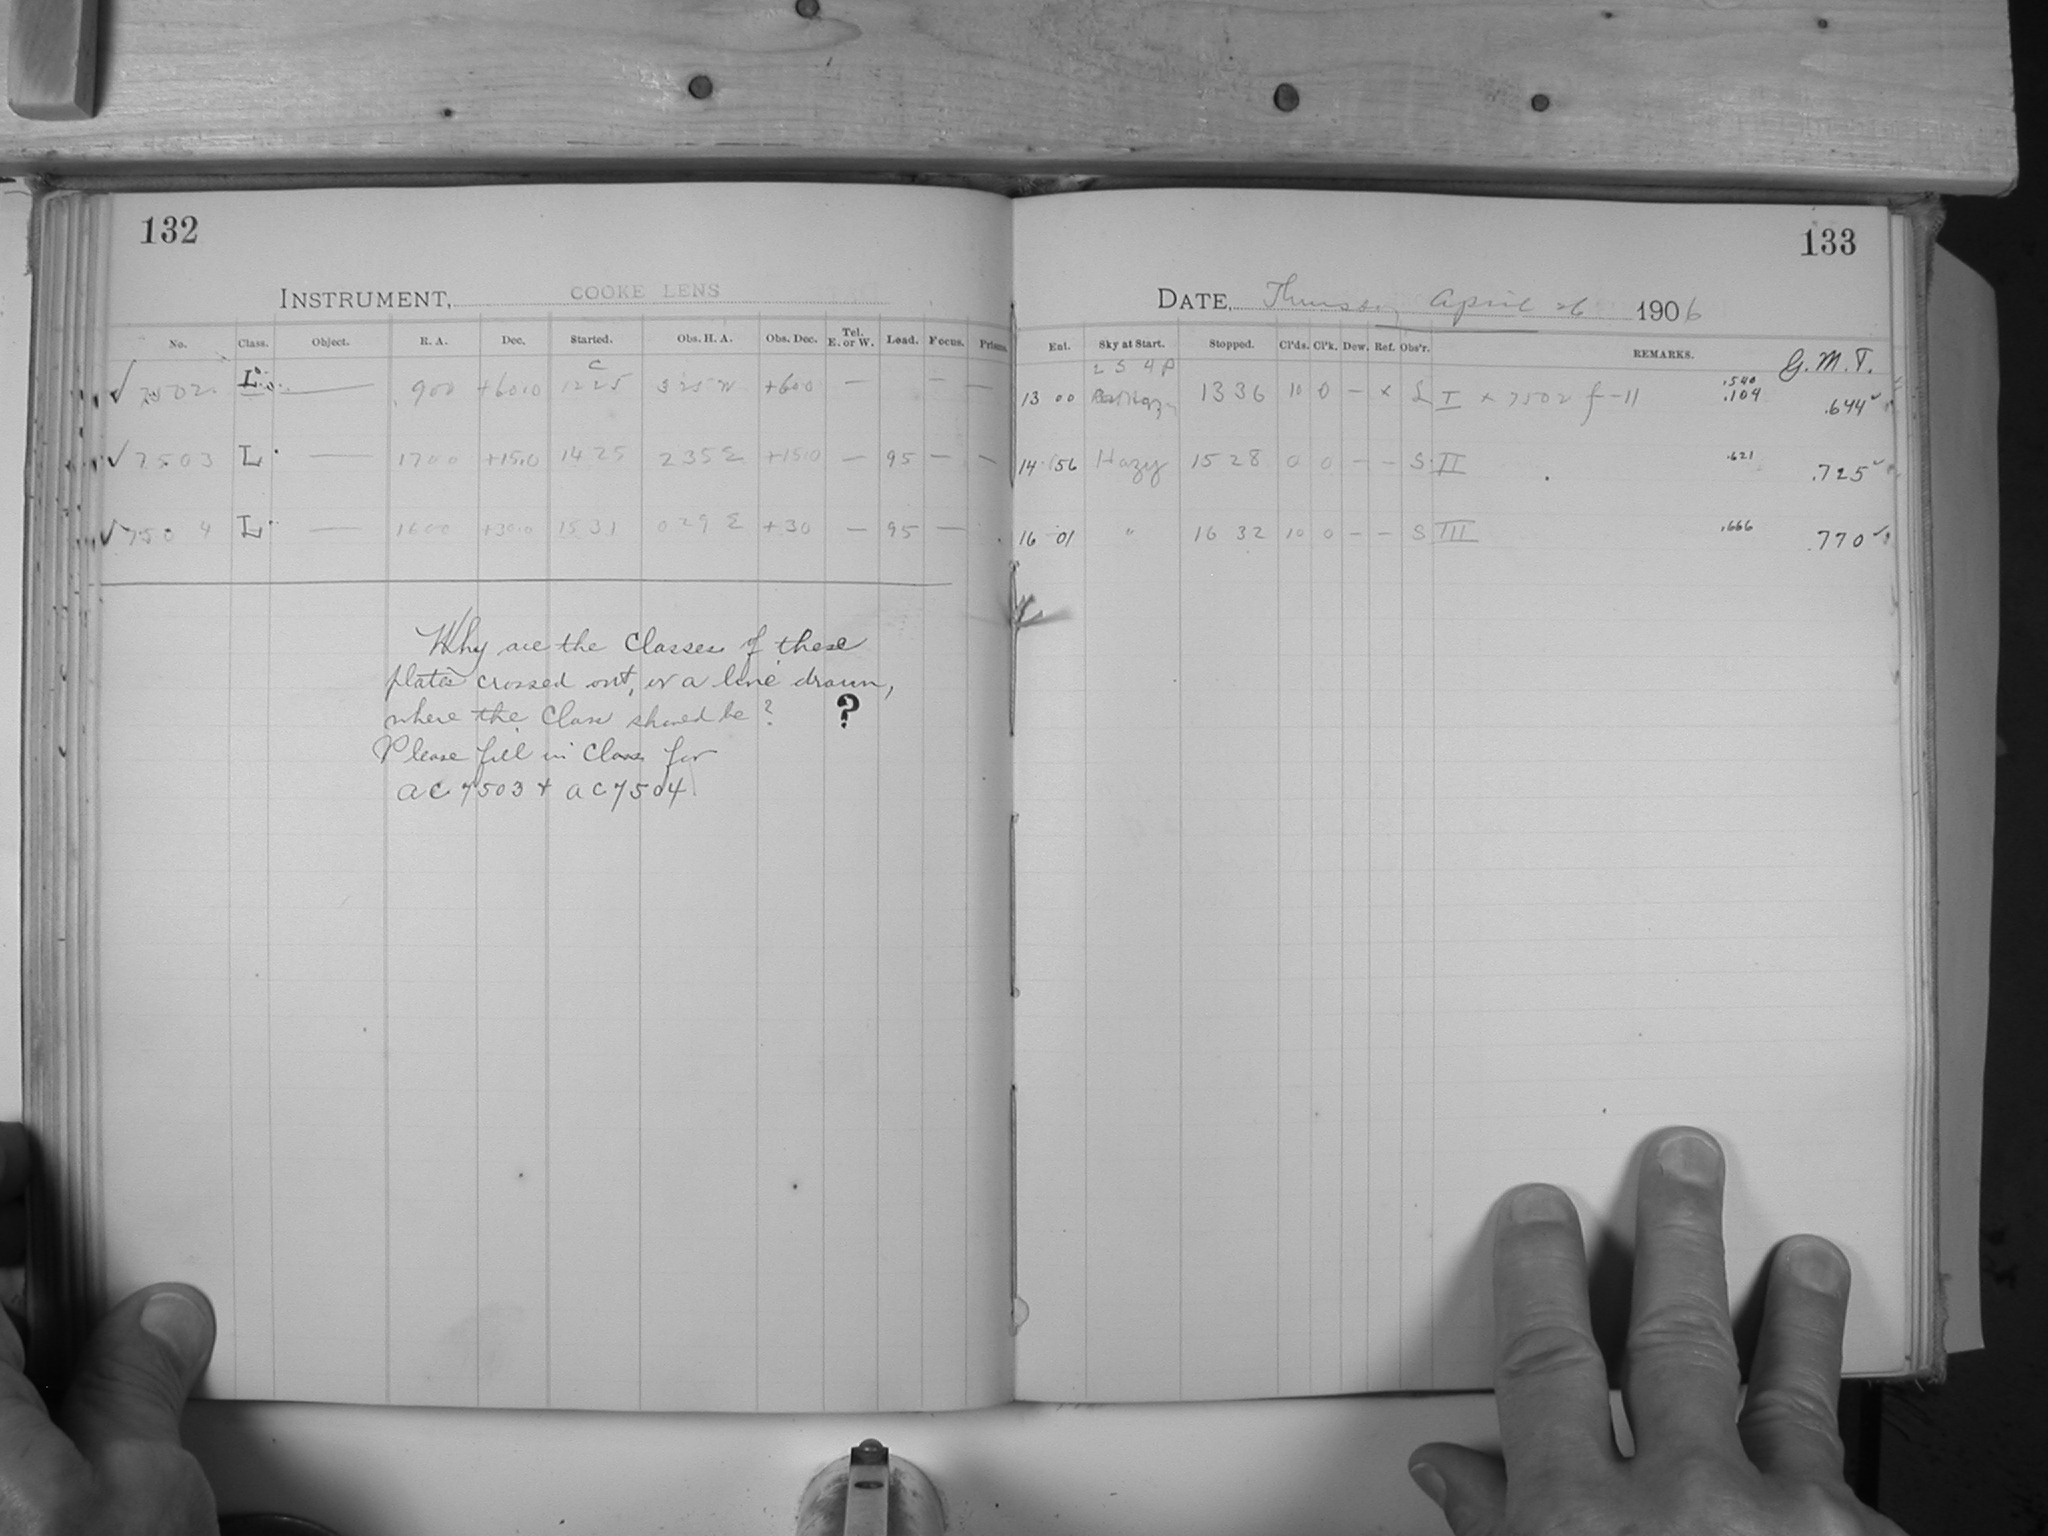 132
INSTRUMENT, COOKE LENS
No. Class. Object. R. A. Dec. Started. Obs. H. A. Obs. Dec. Tel. E. or W. Load. Focus. Prisms.
C
✓ 7502 L — 900 +60.0 1225 325 W +60.0 — — —
✓ 7503 L — 1700 +15.0 1425 235 E +15.0 — 95 — —
✓ 7504 L — 1600 +30.0 1531 029 E +30 — 95 —
Why are the classes of these
plates crossed out, or a line drawn,
where the class should be? ?
Please fill in class for
AC 7503 + AC 7504
133
DATE, Thursday April 26 1906
Ent. Sky at Start. Stopped. Cl'ds. Cl'k. Dew. Ref. Obs'r. REMARKS. G. M. T.
13 00 1336 10 0 — x L I x 7502 f -11 .540 .104 .644 ✓
14 56 Hazy 1528 0 0 — — S II .621 .725 ✓
16 01 " 16 32 10 0 — — S III .666 .770 ✓